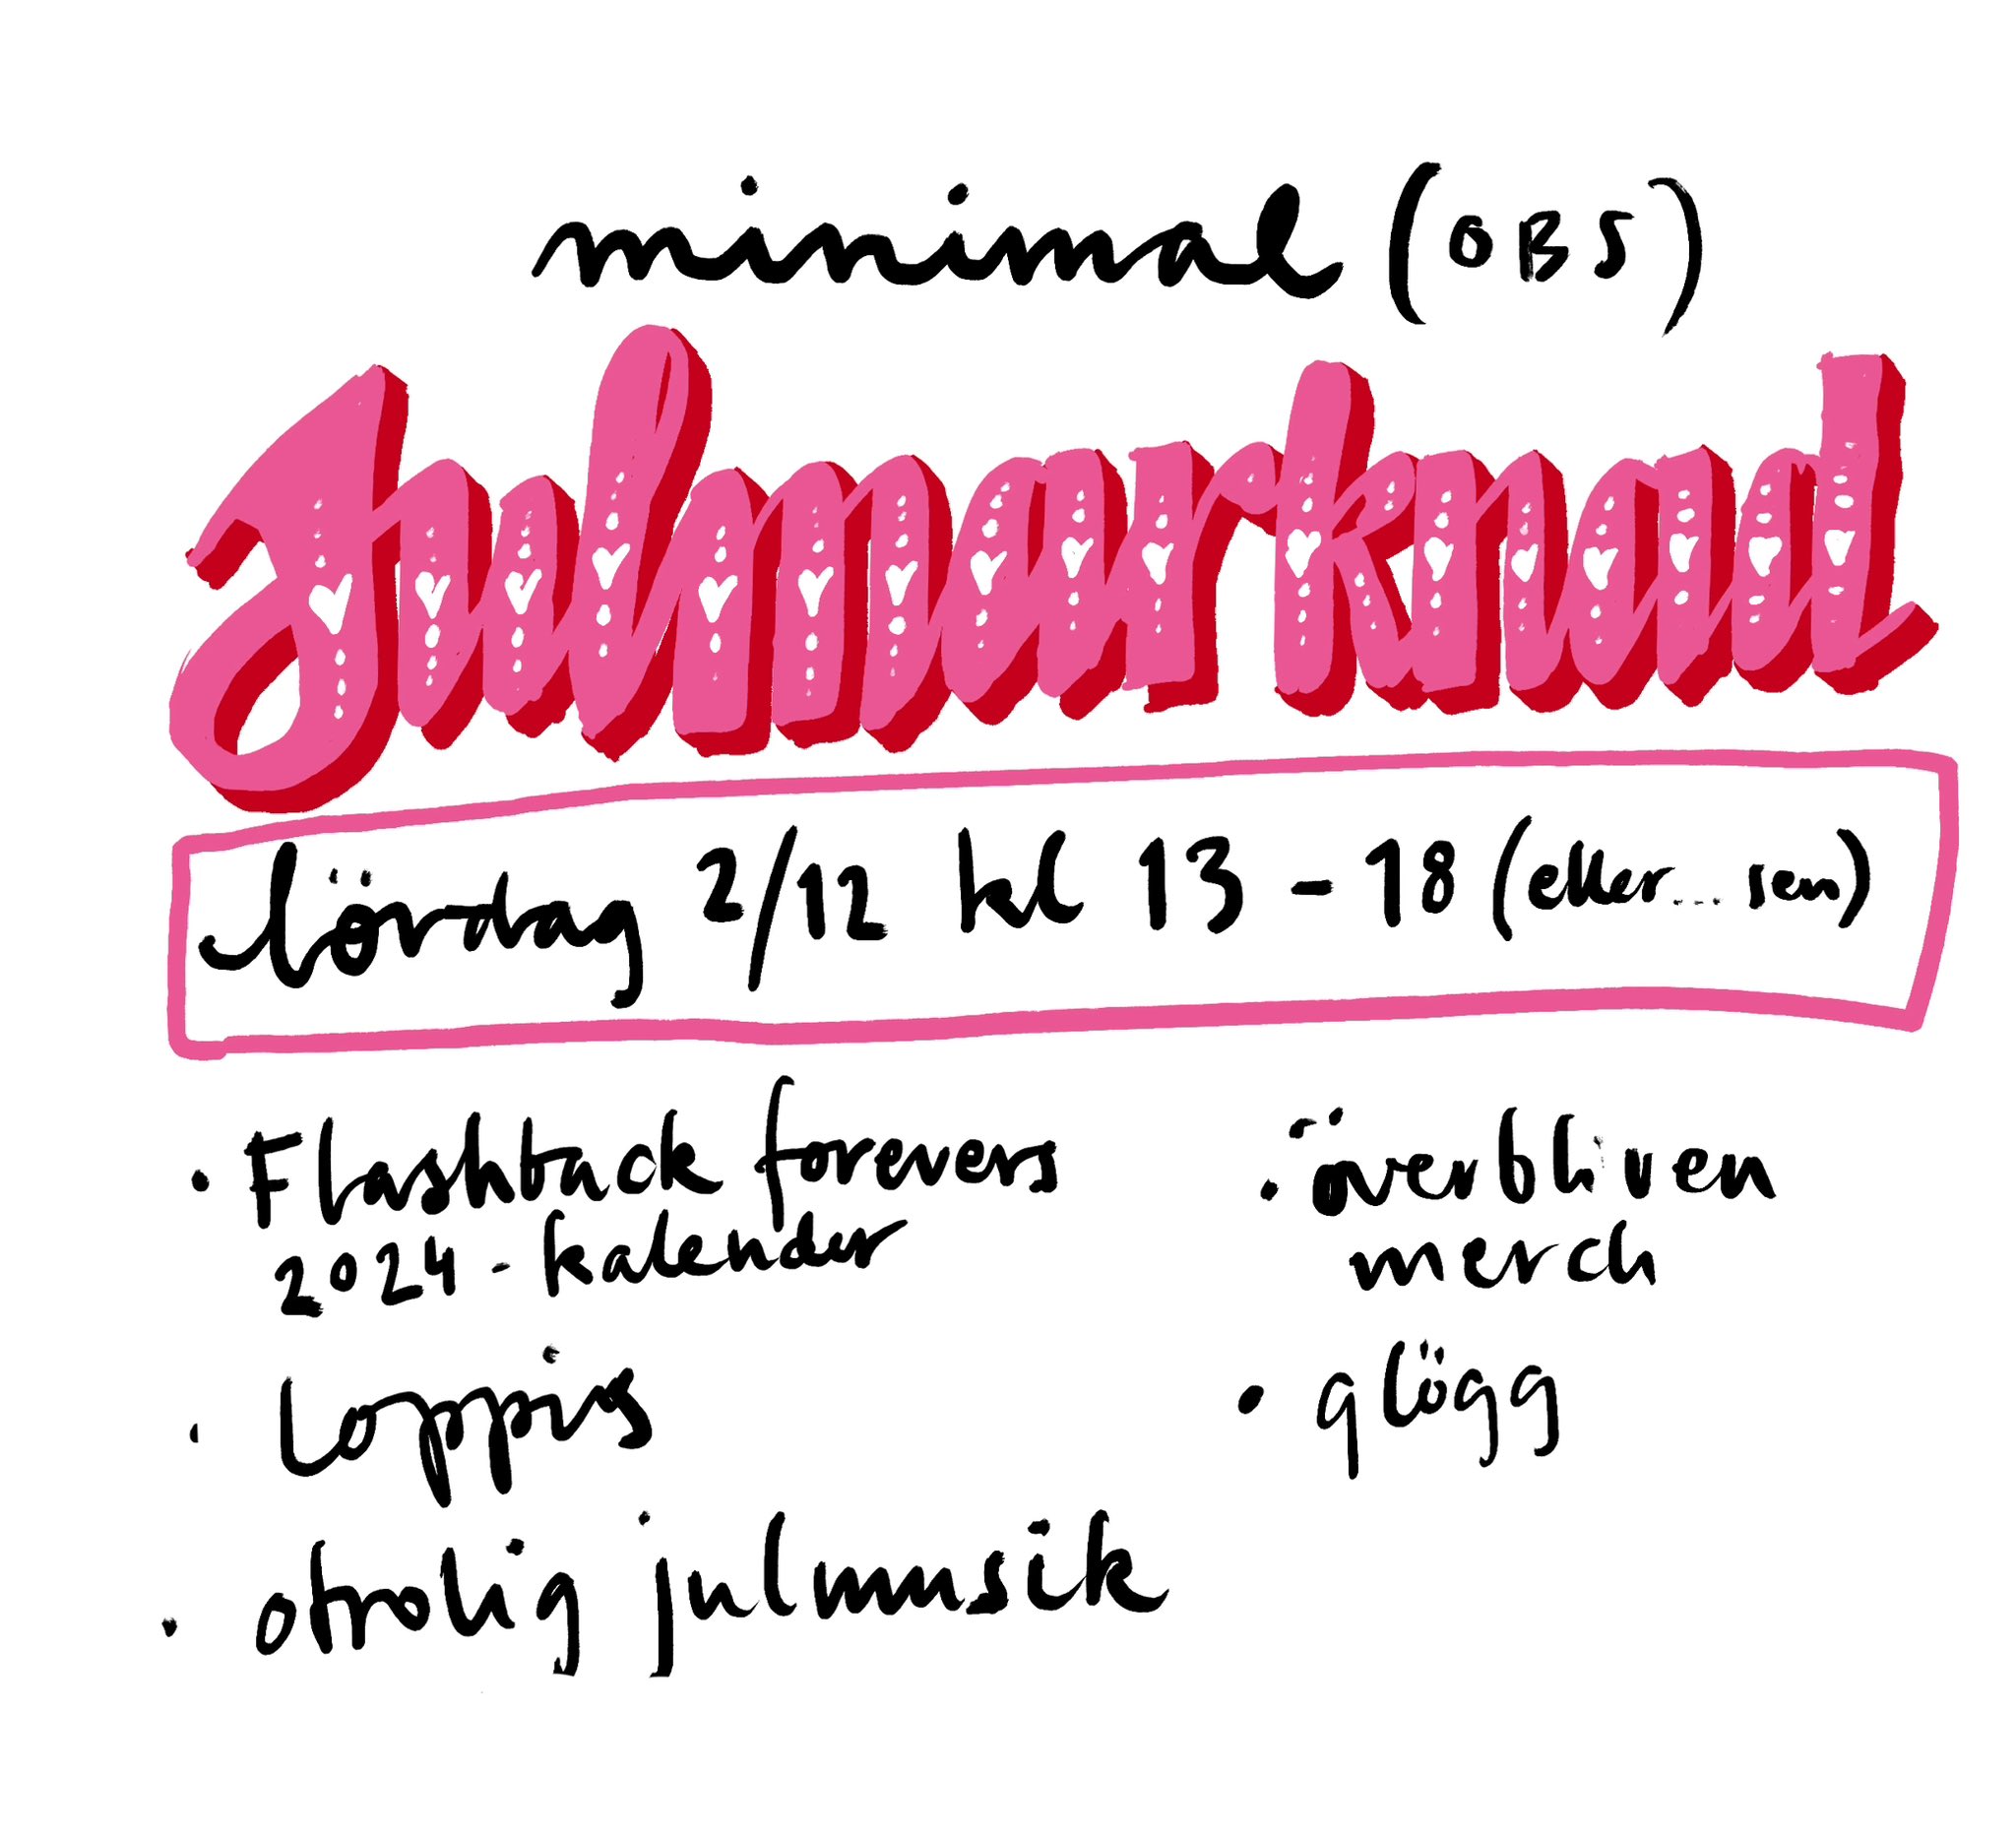 minimal (OBS)
Julmarknad
lördag 2/12 kl 13-18 (eller... sen)
• Flashback forevers
2024-kalender
• Loppis
• otrolig julmusik
• överbliven
merch
• glögg